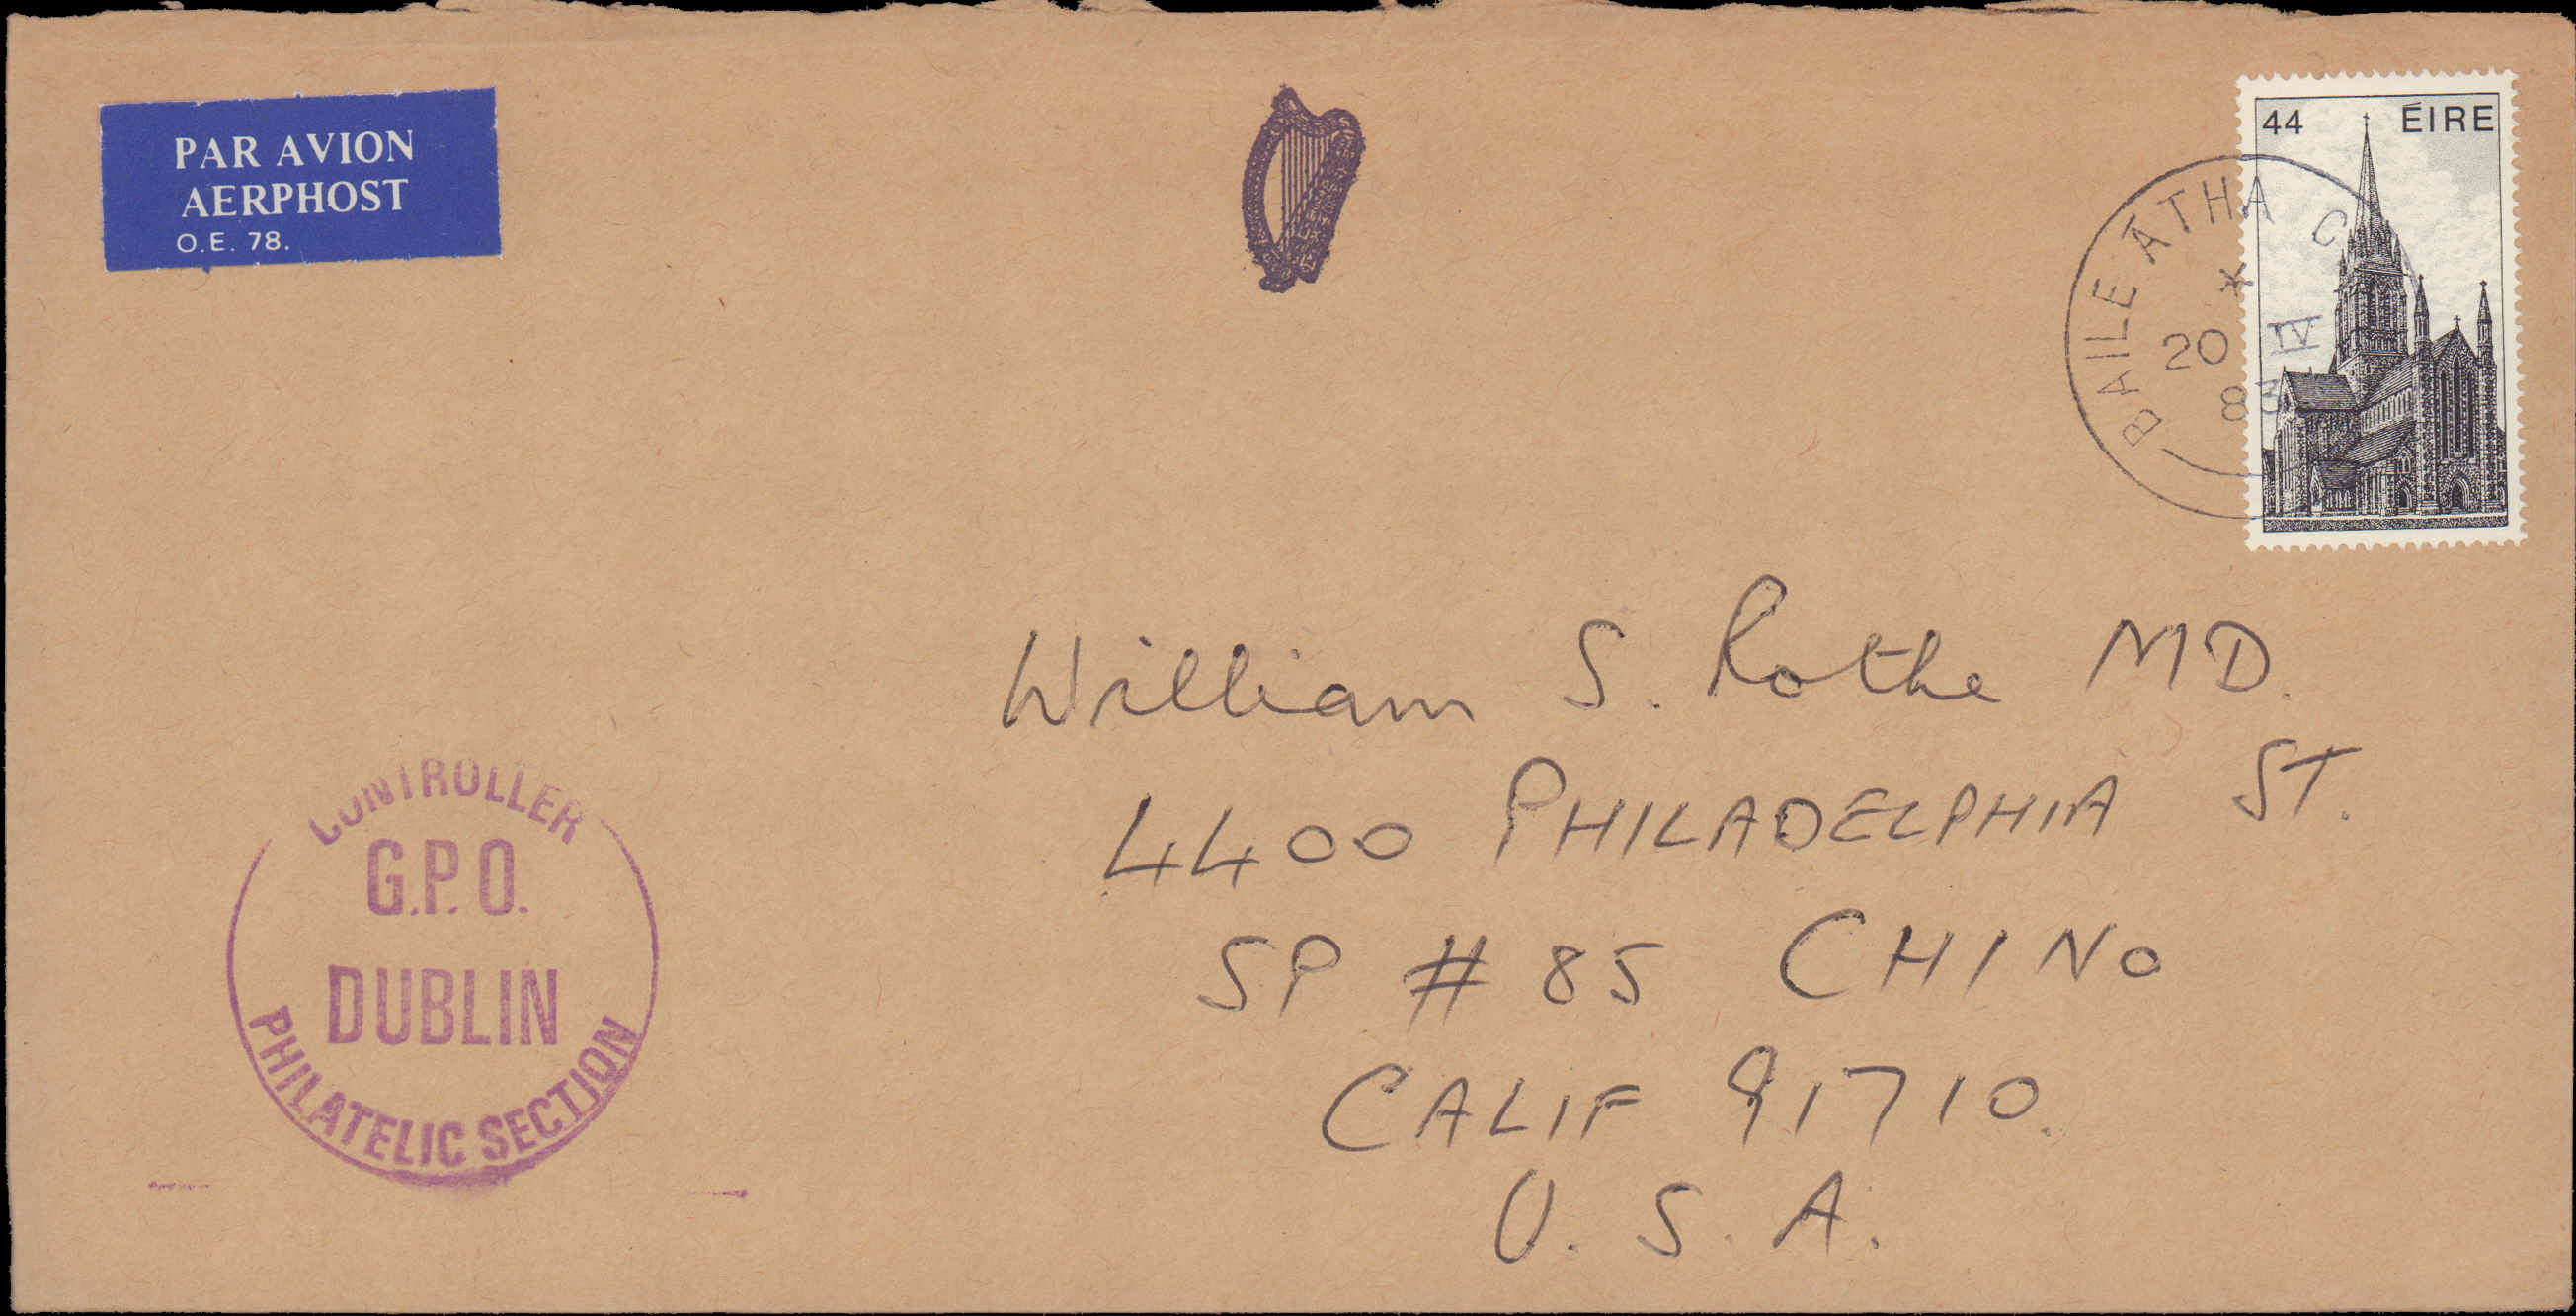 PAR AVION
AERPHOST
O.E. 78.
44 ÉIRE
BAILE ÁTHA
20 IV
William S. Rothe MD.
4400 PHILADELPHIA ST.
SP # 85 CHINO
CALIF 91710.
U. S. A.
CONTROLLER
G.P.O.
DUBLIN
PHILATELIC SECTION